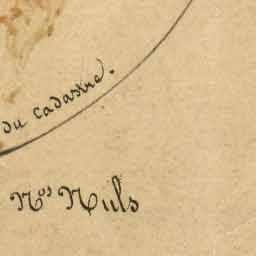 du cadastre.
Nos Nuls